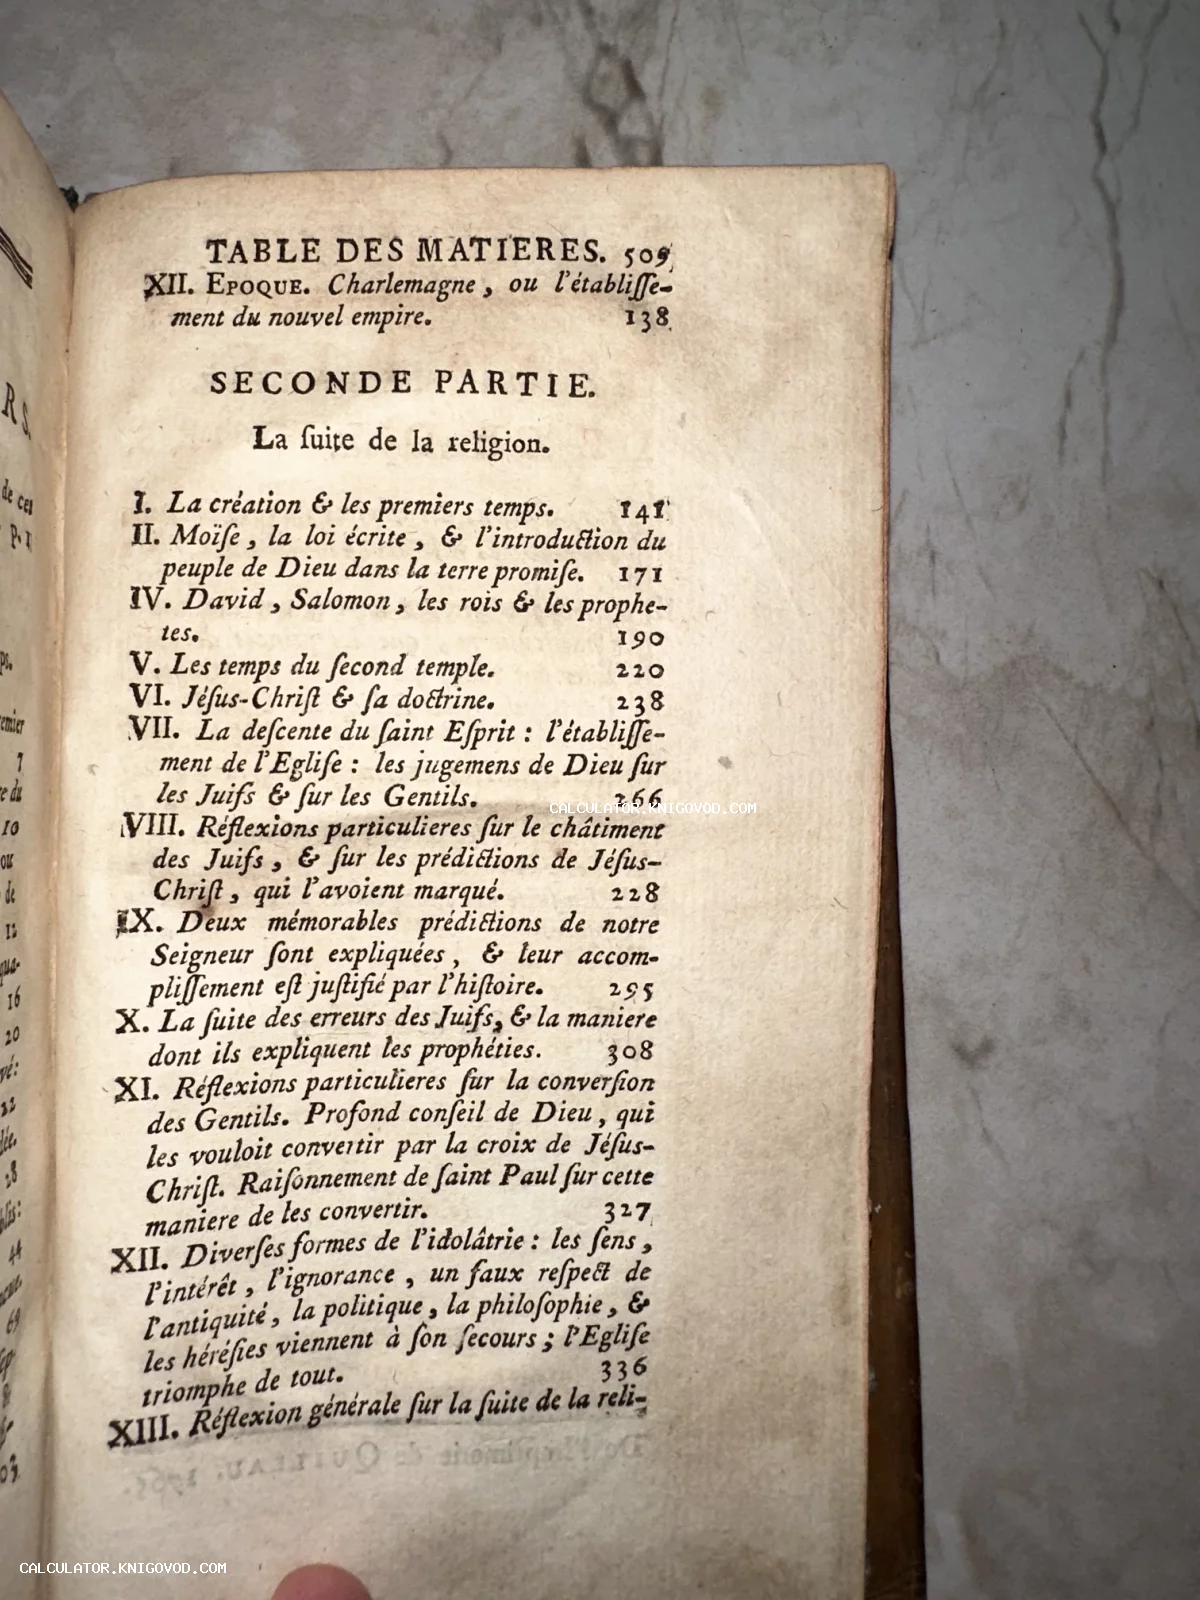 TABLE DES MATIERES. 509
XII. EPOQUE. Charlemagne, ou l'établiſſe-
ment du nouvel empire. 138
SECONDE PARTIE.
La ſuite de la religion.
I. La création & les premiers temps. 141
II. Moïſe, la loi écrite, & l'introduction du
peuple de Dieu dans la terre promiſe. 171
IV. David, Salomon, les rois & les prophe-
tes. 190
V. Les temps du ſecond temple. 220
VI. Jéſus-Chriſt & ſa doctrine. 238
VII. La deſcente du ſaint Eſprit : l'établiſſe-
ment de l'Egliſe : les jugemens de Dieu ſur
les Juifs & ſur les Gentils. 266
VIII. Réflexions particulieres ſur le châtiment
des Juifs, & ſur les prédictions de Jéſus-
Chriſt, qui l'avoient marqué. 228
IX. Deux mémorables prédictions de notre
Seigneur ſont expliquées, & leur accom-
pliſſement eſt juſtifié par l'hiſtoire. 295
X. La ſuite des erreurs des Juifs, & la maniere
dont ils expliquent les prophéties. 308
XI. Réflexions particulieres ſur la converſion
des Gentils. Profond conſeil de Dieu, qui
les vouloit convertir par la croix de Jéſus-
Chriſt. Raiſonnement de ſaint Paul ſur cette
maniere de les convertir. 327
XII. Diverſes formes de l'idolâtrie : les ſens,
l'intérêt, l'ignorance, un faux reſpect de
l'antiquité, la politique, la philoſophie, &
les héréſies viennent à ſon ſecours ; l'Egliſe
triomphe de tout. 336
XIII. Réflexion générale ſur la ſuite de la reli-
RS.
de ces
P. 1
emier
7
re du
10
ou
de
12
qua-
16
20
22
28
44
69
CALCULATOR.KNIGOVOD.COM
CALCULATOR.KNIGOVOD.COM